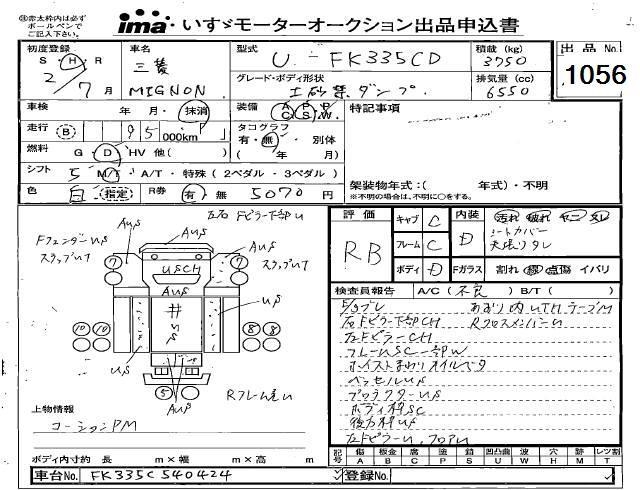 ㊟赤太枠内は必ず
ボールペンで
ご記入下さい。
ima いすゞモーターオークション出品申込書
初度登録 車名 型式 U-FK335CD 積載 (kg) 出品No.
S・H・R 三菱 3750
2/7月 MIGNON グレード・ボディ形状 土砂禁ダンプ 排気量 (cc) 6550 1056
車検 年 月・抹消 装備 A P P C S W. 特記事項
走行 B 95 000km タコグラフ 有・無・別体
燃料 G・D・HV 他( ) ( 年 月)
シフト 5 M/T・A/T・特殊 (2ペダル・3ペダル) 架装物年式:( 年式)・不明
色 白 指定 R券 有 無 5070円 ※不明の場合は、不明に○をする。
評価 RB キャブ D 内装 D 汚れ 破れ ヤニ タレ
シートカバー
天張りタレ
フレーム C
ボディ D Fガラス 割れ 線 点傷 イバリ
検査員報告 A/C (不良) B/T ( )
左右Fピラー下部U
AUS AUS AUS
FフェンダーUS
スラップUT
スラップUT
7 7
USCH
AUS
井
US
US
10 10 8 8
US
5
AUS
Rフレーム尾U
左Fピラー下部CH
RクロスメンバーU
左FピラーCH
フレームSC一部W
ホイストまわりオイルベタ
ベッセルUS
プロテクターUS
ボディ枠SC
後方枠US
左FピラーU、フロアU
上物情報
コーションPM
ボディ内寸約 長 m×幅 m×高 m
記号 傷 板金 腐 塗 錆 凹凸曲 波 穴 跡 レツ割
A B C P S U W H M T
車台No. FK335C540424 登録No.